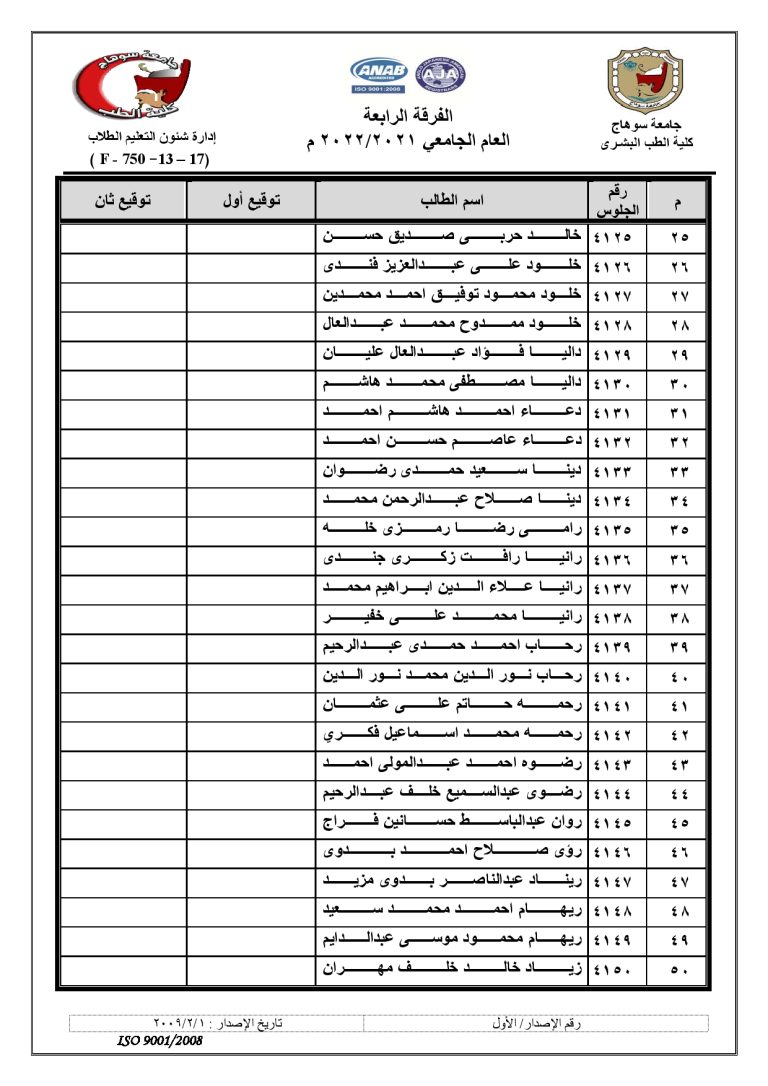 جامعة سوهاج
كلية الطب البشرى
ANAB
ACCREDITED
ISO 9001:2008
AJA
الفرقة الرابعة
العام الجامعي ٢٠٢٢/٢٠٢١ م
جامعة سوهاج
كلية الطب
إدارة شئون التعليم الطلاب
( F - 750 -13 – 17)
م رقم الجلوس اسم الطالب توقيع أول توقيع ثان
٢٥ ٤١٢٥ خالد حربى صديق حسن
٢٦ ٤١٢٦ خلود على عبدالعزيز فندى
٢٧ ٤١٢٧ خلود محمود توفيق احمد محمدين
٢٨ ٤١٢٨ خلود ممدوح محمد عبدالعال
٢٩ ٤١٢٩ داليا فؤاد عبدالعال عليان
٣٠ ٤١٣٠ داليا مصطفى محمد هاشم
٣١ ٤١٣١ دعاء احمد هاشم احمد
٣٢ ٤١٣٢ دعاء عاصم حسن احمد
٣٣ ٤١٣٣ دينا سعيد حمدى رضوان
٣٤ ٤١٣٤ دينا صلاح عبدالرحمن محمد
٣٥ ٤١٣٥ رامى رضا رمزى خله
٣٦ ٤١٣٦ رانيا رافت زكرى جندى
٣٧ ٤١٣٧ رانيا علاء الدين ابراهيم محمد
٣٨ ٤١٣٨ رانيا محمد على خفير
٣٩ ٤١٣٩ رحاب احمد حمدى عبدالرحيم
٤٠ ٤١٤٠ رحاب نور الدين محمد نور الدين
٤١ ٤١٤١ رحمه حاتم على عثمان
٤٢ ٤١٤٢ رحمه محمد اسماعيل فكري
٤٣ ٤١٤٣ رضوه احمد عبدالمولى احمد
٤٤ ٤١٤٤ رضوى عبدالسميع خلف عبدالرحيم
٤٥ ٤١٤٥ روان عبدالباسط حسانين فراج
٤٦ ٤١٤٦ رؤى صلاح احمد بدوى
٤٧ ٤١٤٧ ريناد عبدالناصر بدوى مزيد
٤٨ ٤١٤٨ ريهام احمد محمد سعيد
٤٩ ٤١٤٩ ريهام محمود موسى عبدالدايم
٥٠ ٤١٥٠ زياد خالد خلف مهران
رقم الإصدار/ الأول تاريخ الإصدار : ٢٠٠٩/٢/١
ISO 9001/2008